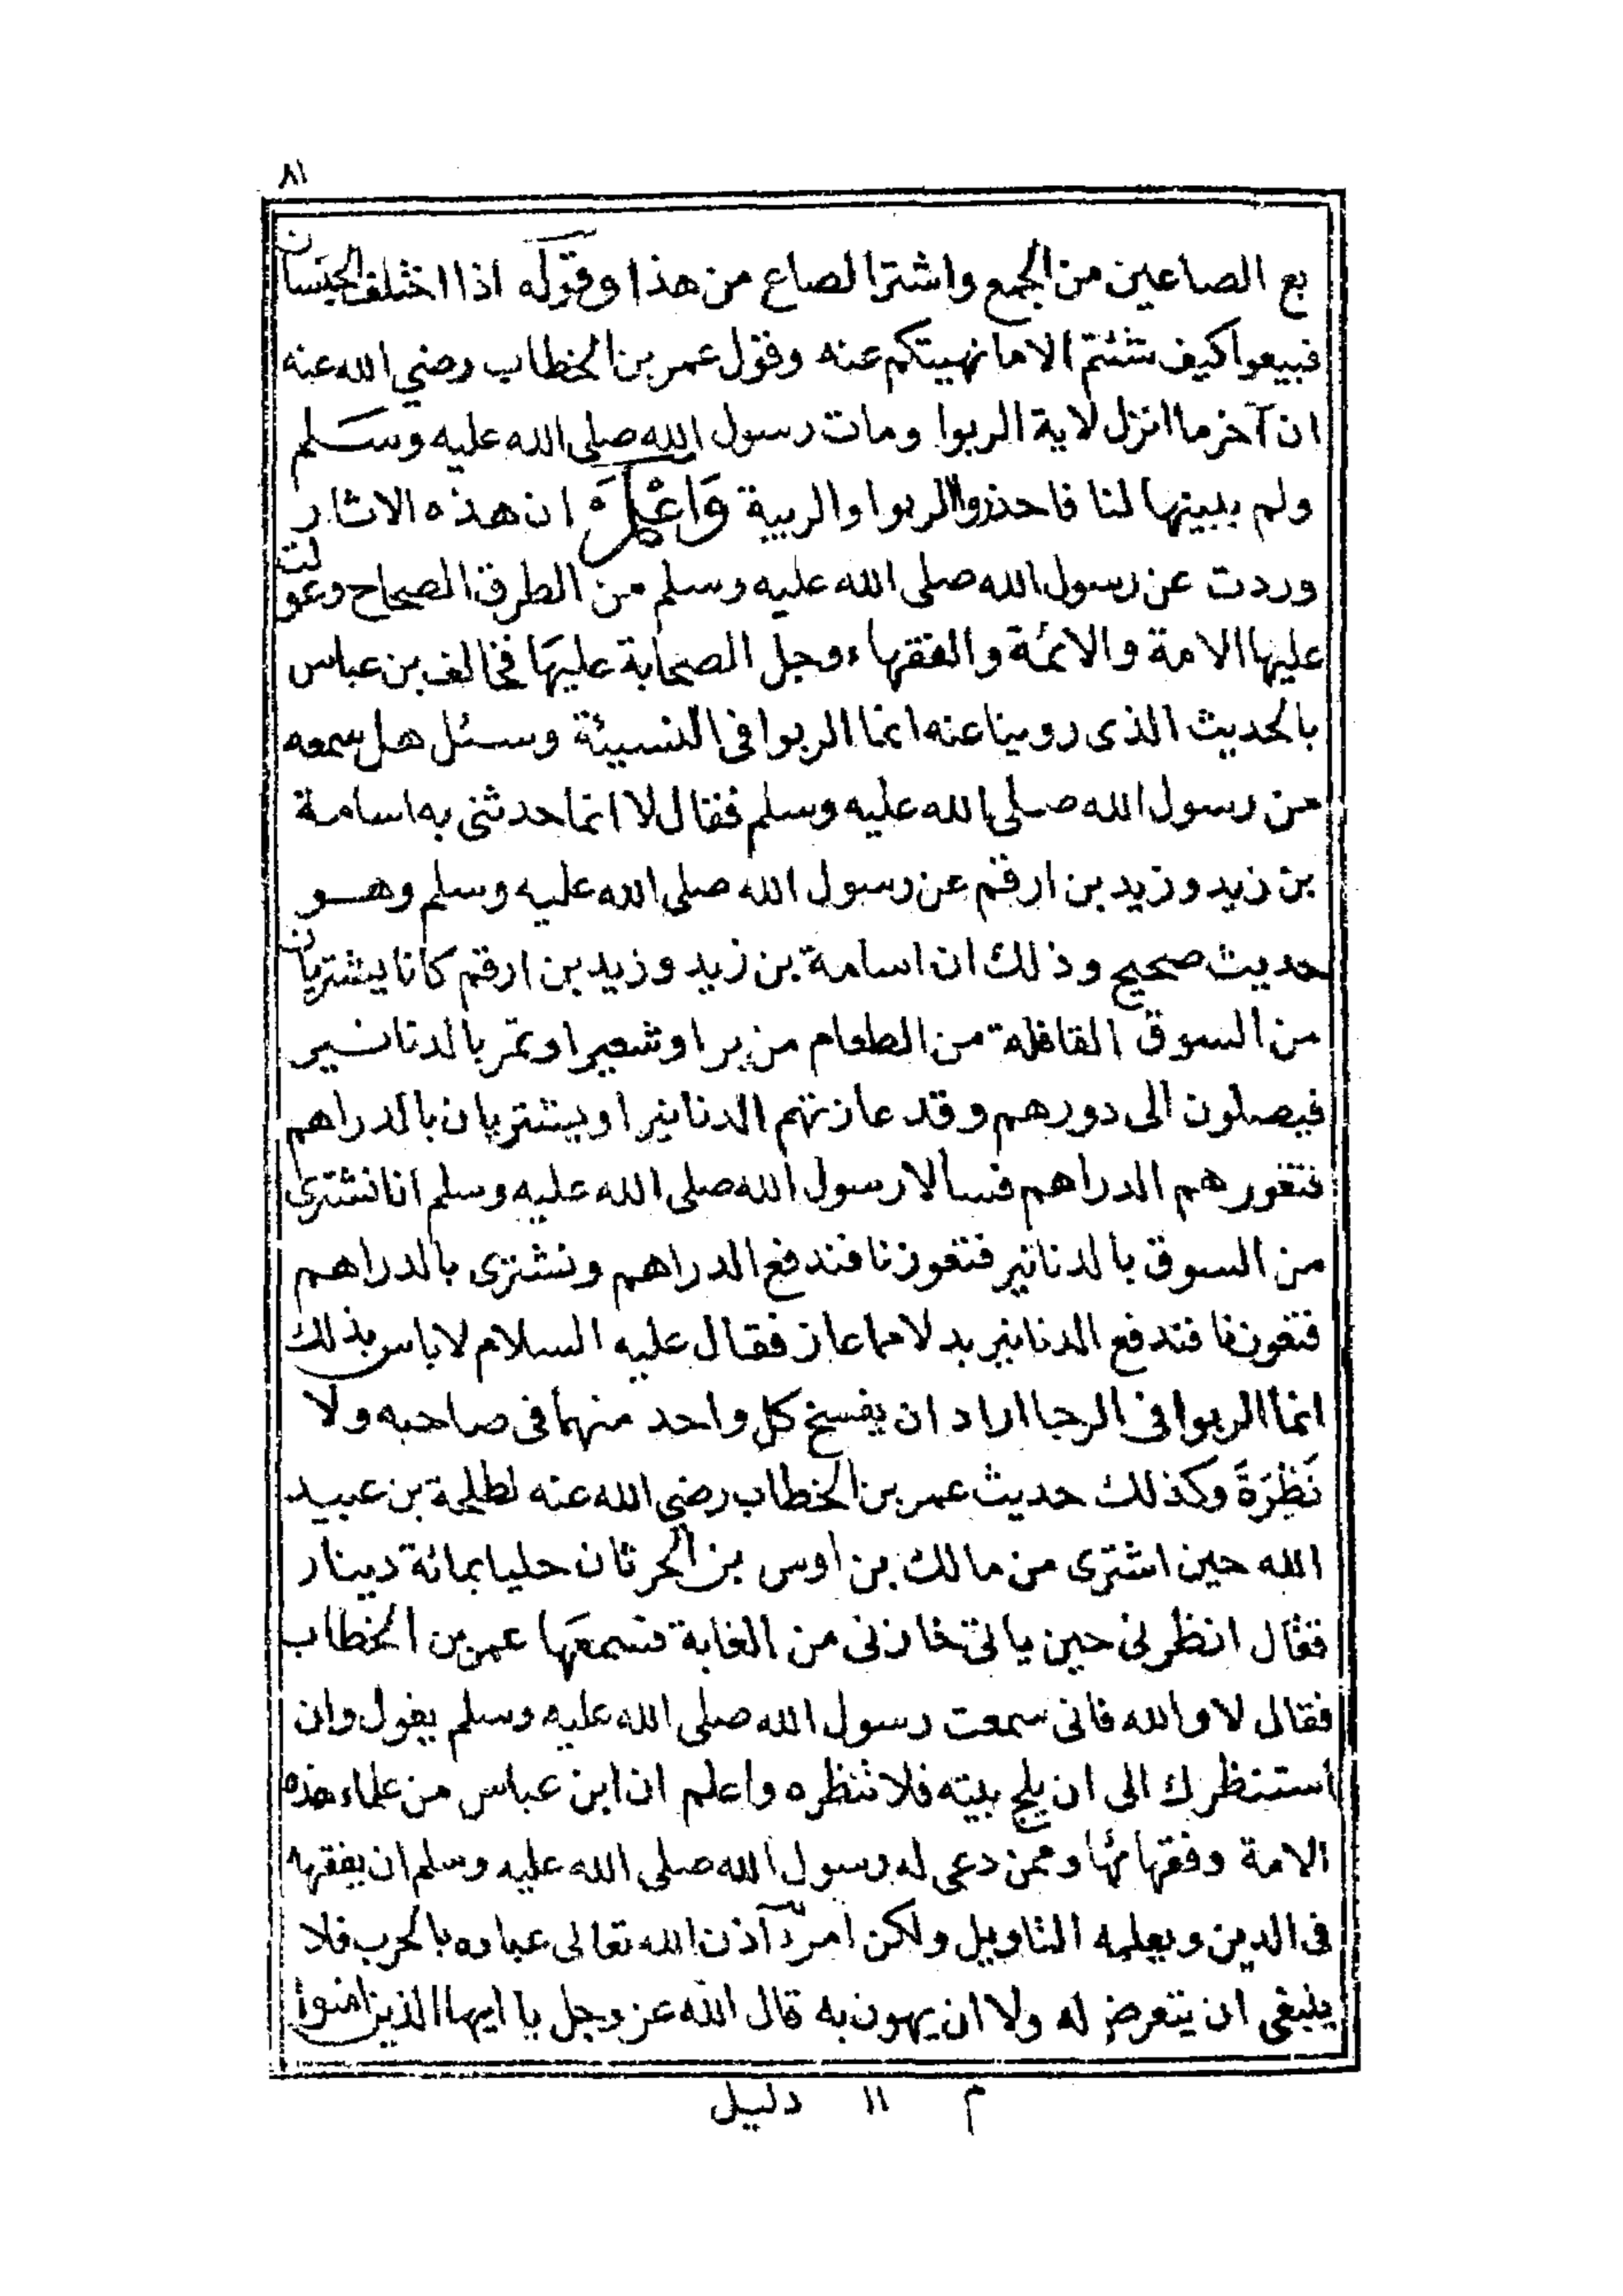 ٨١
بع الصاعين من الجمع واشتر الصاع من هذا وقوله اذا اختلف الجنسان
فبيعوا كيف شئتم الا ما نهيتكم عنه وقول عمر بن الخطاب رضي الله عنه
ان آخر ما انزل لاية الربوا ومات رسول الله صلى الله عليه وسلم
ولم يبينها لنا فاحذروا الربوا والريبة وَاعْلَمْ ان هذه الاثار
وردت عن رسول الله صلى الله عليه وسلم من الطرق الصحاح وعولت
عليها الامة والائمة والفقهاء وجل الصحابة عليها فخالف بن عباس
بالحديث الذى روينا عنه انما الربوا فى النسيئة وسئل هل سمعه
من رسول الله صلى الله عليه وسلم فقال لا انما حدثنى به اسامة
بن زيد وزيد بن ارقم عن رسول الله صلى الله عليه وسلم وهو
حديث صحيح وذلك ان اسامة بن زيد وزيد بن ارقم كانا يشتريان
من السوق القافلة من الطعام من بر او شعير او تمر بالدنانير
فيصلون الى دورهم وقد عازتهم الدنانير او يشتريان بالدراهم
فتغورهم الدراهم فسالا رسول الله صلى الله عليه وسلم انا نشترى
من السوق بالدنانير فتعوزنا فندفع الدراهم ونشترى بالدراهم
فتعوزنا فتدفع الدنانير بدلا مما عاز فقال عليه السلام لا باس بذلك
انما الربوا فى الرجا اراد ان يفسخ كل واحد منهما فى صاحبه ولا
نَظِرَةً وكذلك حديث عمر بن الخطاب رضي الله عنه لطلحة بن عبيد
الله حين اشترى من مالك بن اوس بن الحرثان حليا بمائة دينار
فقال انظرنى حين ياتى خازنى من الغابة فسمعها عمر بن الخطاب
فقال لا والله فانى سمعت رسول الله صلى الله عليه وسلم يقول وان
استنظرك الى ان يلج بيته فلا تنظره واعلم ان ابن عباس من علماء هذه
الامة وفقهائها وممن دعى له رسول الله صلى الله عليه وسلم ان يفقهه
فى الدين ويعلمه التاويل ولكن امرٌ آذن الله تعالى عباده بالحرب فلا
ينبغى ان يتعرض له ولا ان يهون به قال الله عز وجل يا ايها الذين امنوا
م ١١ دليل